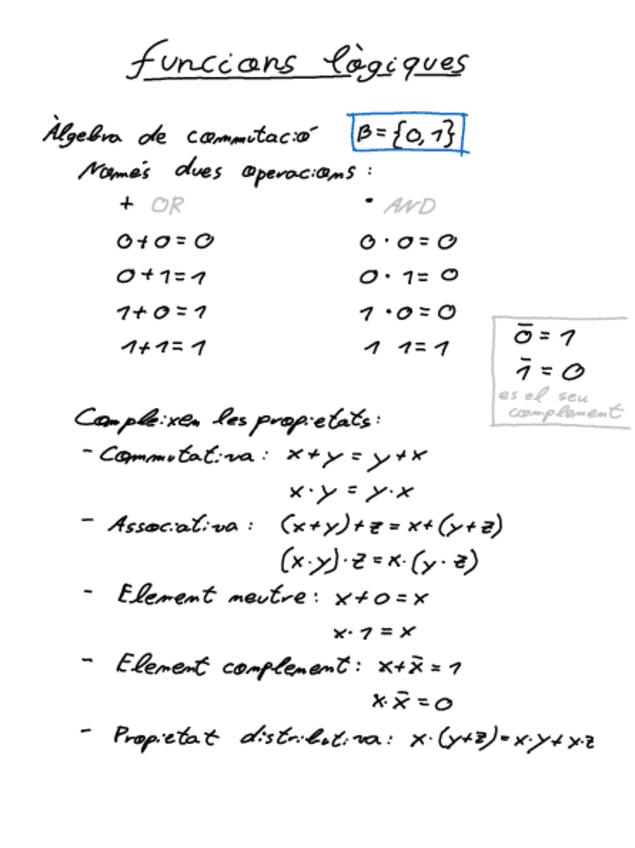 funcions lògiques
Àlgebra de commutació B={0,1}
Només dues operacions:
+ OR · AND
0+0=0 0·0=0
0+1=1 0·1=0
1+0=1 1·0=0
1+1=1 1 1=1
0̅=1
1̅=0
es el seu
complement
Compleixen les propietats:
- Commutativa: x+y=y+x
x·y=y·x
- Associativa: (x+y)+z=x+(y+z)
(x·y)·z=x·(y·z)
- Element neutre: x+0=x
x·1=x
- Element complement: x+x̅=1
x·x̅=0
- Propietat distributiva: x·(y+z)=x·y+x·z